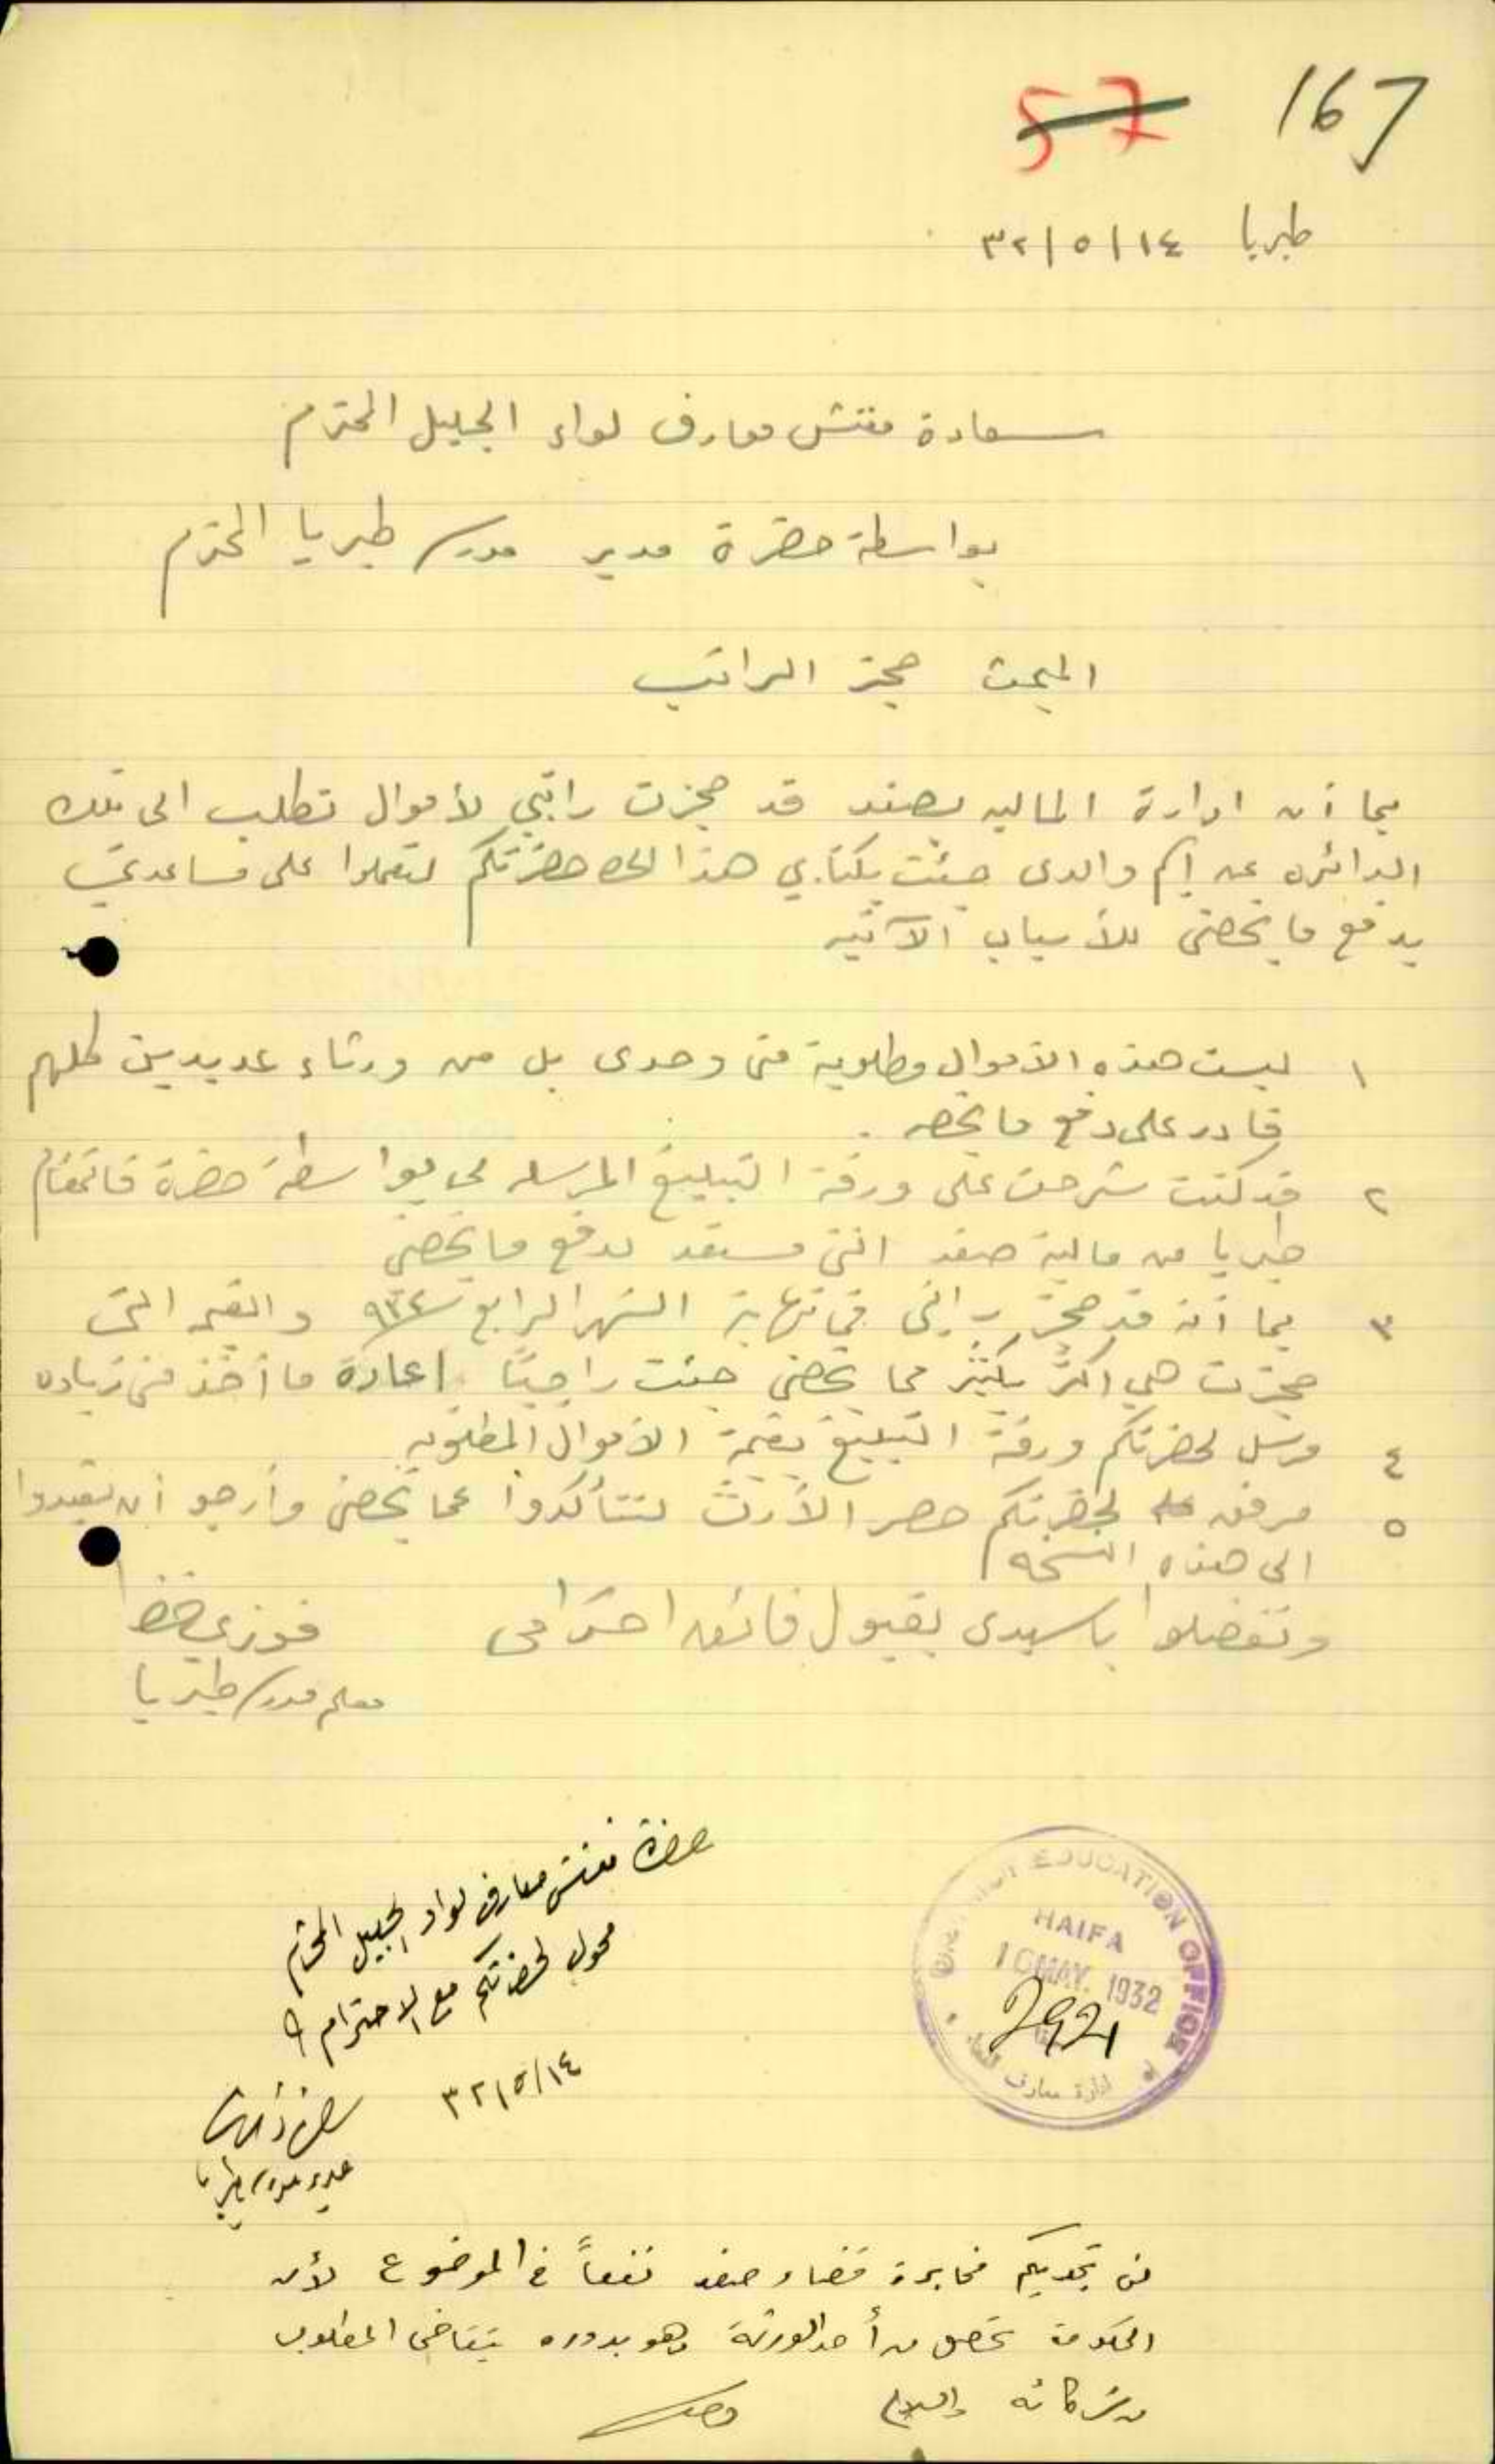 57 167
طبريا ١٤/٥/٣٢
سعادة مفتش معارف لواء الجليل المحترم
بواسطة حضرة مدير مدرسة طبريا المحترم
المبحث حجز الراتب
بما أن ادارة الماليه بصفد قد حجزت راتبي لأموال تطلب الى تلك
الدائره عن اسم والدى جئت بكتابي هذا الى حضرتكم لتعملوا على مساعدتي
بدفع ما يخصنى للأسباب الآتيه
١ ليست هذه الاموال مطلوبة منى وحدى بل من ورثاء عديدين كلهم
قادر على دفع ما يخصه .
٢ قد كنت شرحت على ورقة التبليغ المرسله لى بواسطة حضرة قائمقام
طبريا من مالية صفد اننى مستعد لدفع ما يخصنى
٣ بما أنه قد حجز راتبى في نهاية الشهر الرابع سنة ٩٣٢ والقيمه التى
حجزت هي اكثر بكثير مما يخصنى جئت راجيًا اعادة ما أخذ منى زياده
٤ مرسل لحضرتكم ورقة التبليغ بقيمة الاموال المطلوبه
٥ مرفق لحضرتكم حصر الأرث لتتأكدوا عما يخصنى وأرجو أن تعيدوا
الى هذه النسخه
وتفضلوا ياسيدى بقبول فائق احترامى فوزي
معلم مدرسة طبريا
حضرة مفتش معارف لواء الجليل المحترم
محول لحضرتكم مع الاحترام
١٤/٥/٣٢
مدير مدرسة طبريا
EDUCATION OFFICE
HAIFA
16 MAY. 1932
292
ادارة معارف
لن تجديكم مخابرة قضاء صفد نفعاً في الموضوع لأن
الحكومة تحصل من أحد الورثة وهو بدوره يتقاضى المطلوب
من شركائه والسلام